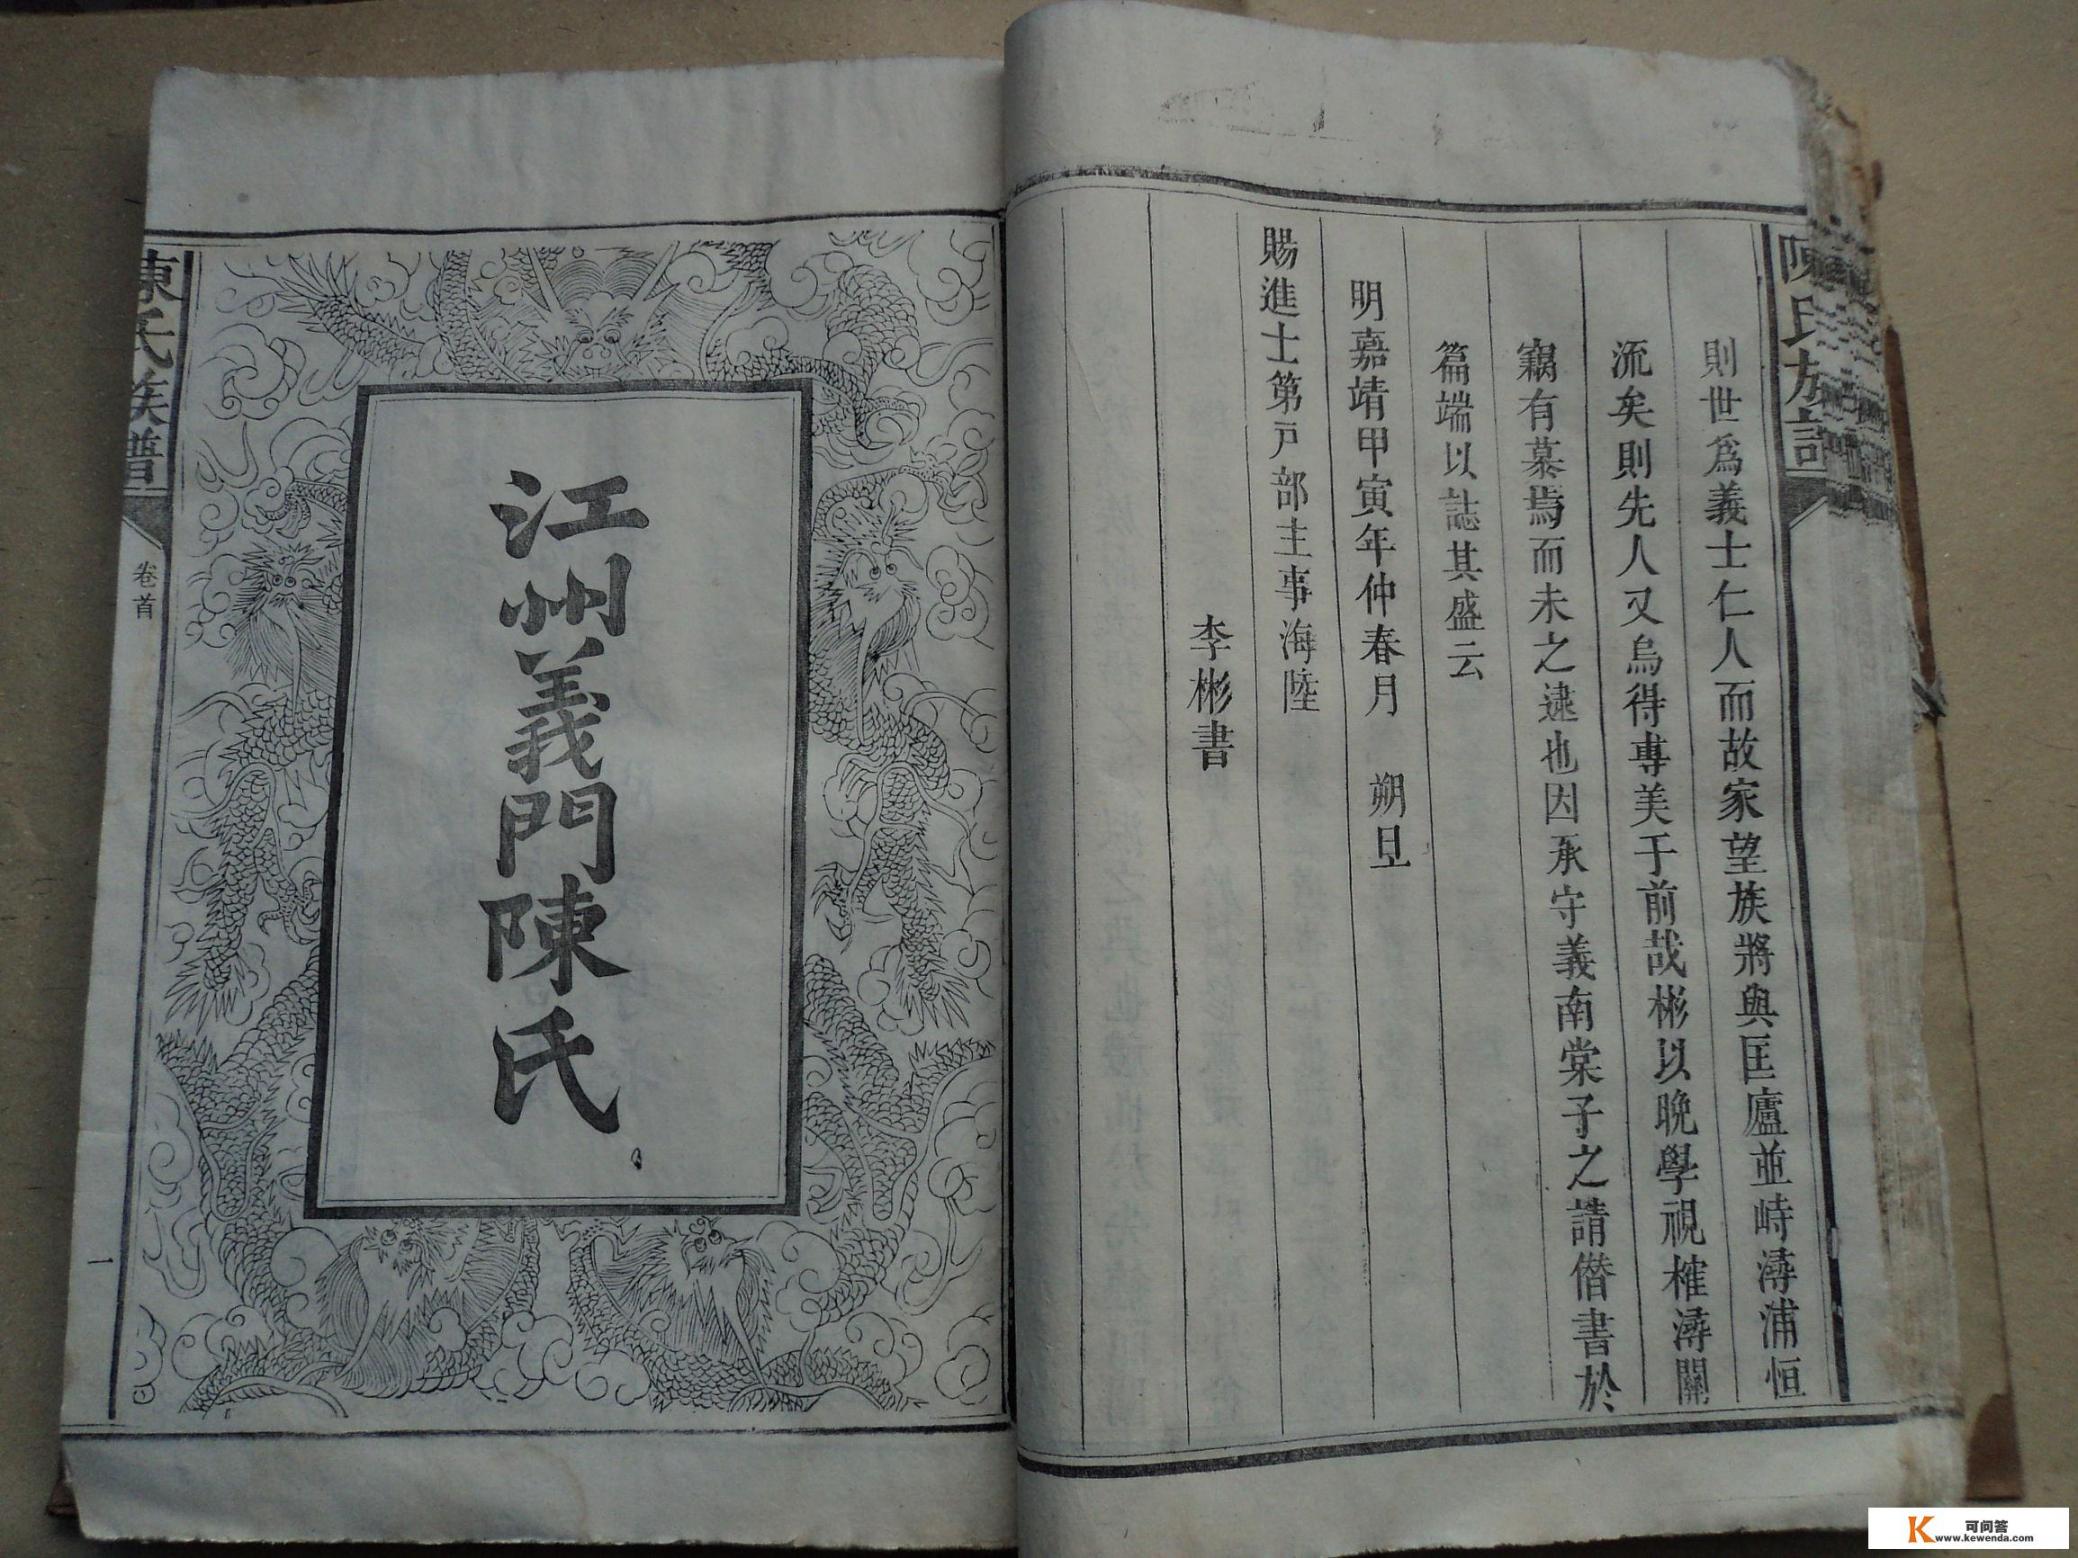 陳氏族譜
則世爲義士仁人而故家望族將與匡廬並峙潯浦恒
流矣則先人又烏得專美于前哉彬以晚學視榷潯關
竊有慕焉而未之逮也因承守義南棠子之請僭書於
篇端以誌其盛云
明嘉靖甲寅年仲春月 朔旦
賜進士第戶部主事海陸
李彬書
江州義門陳氏
陳氏族譜
卷首
一
可问答
www.kewenda.com